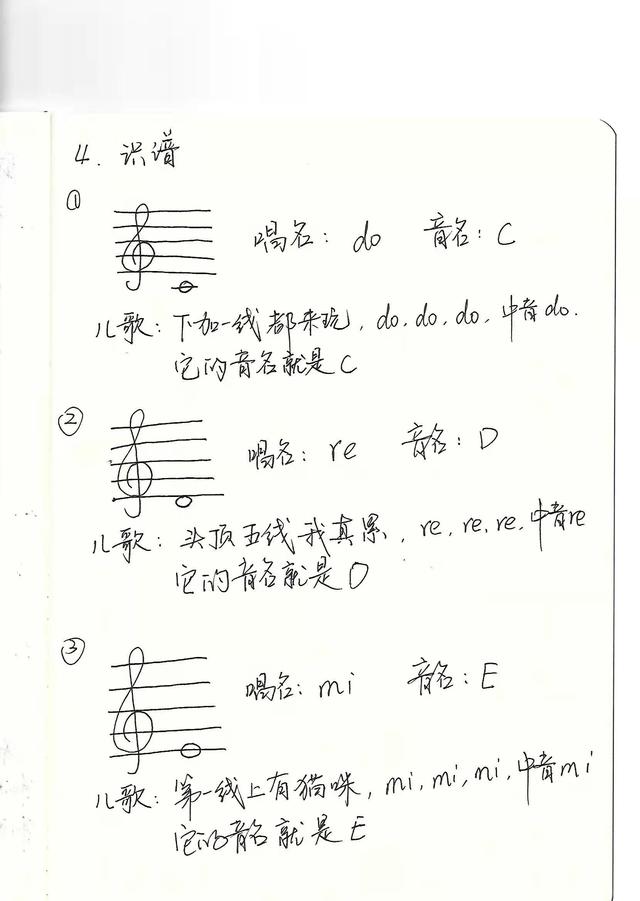 4. 识谱
①
唱名: do 音名: C
儿歌: 下加一线都来玩, do, do, do, 中音do.
它的音名就是C
②
唱名: re 音名: D
儿歌: 头顶五线我真累, re, re, re, 中音re
它的音名就是D
③
唱名: mi 音名: E
儿歌: 第一线上有猫咪, mi, mi, mi, 中音mi
它的音名就是E